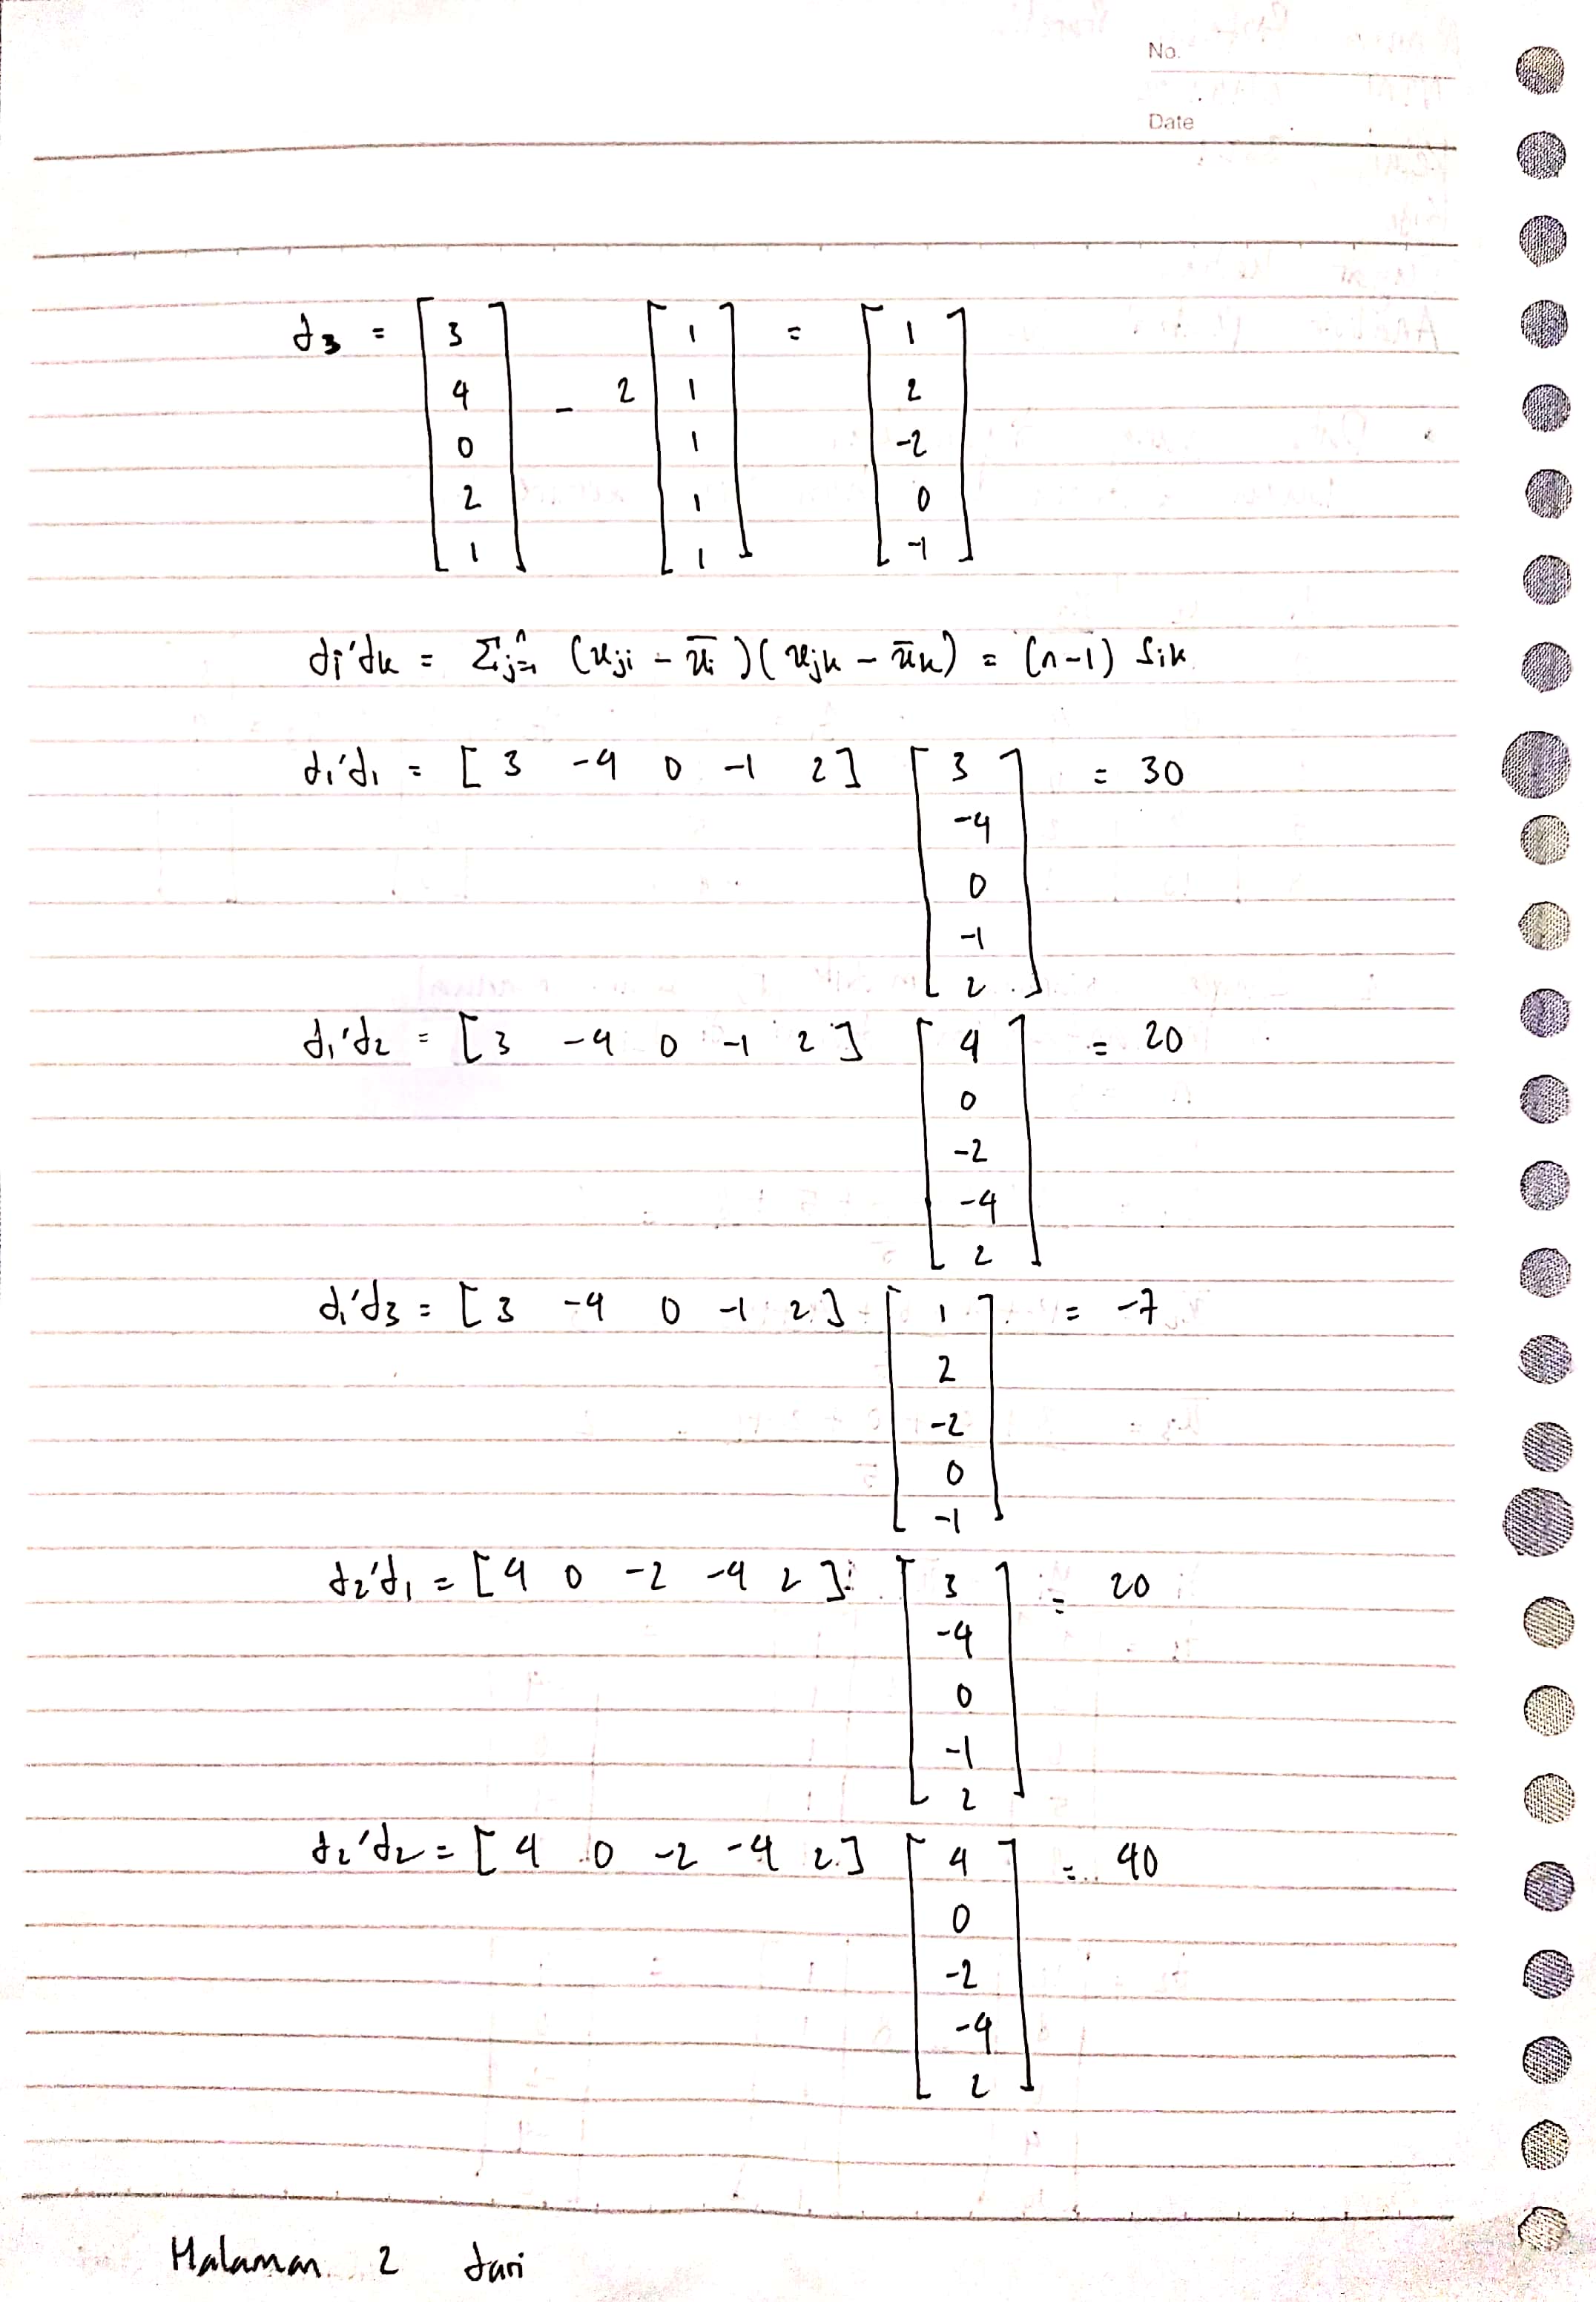 No.
Date
d₃ = [3 4 0 2 1] - 2 [1 1 1 1 1] = [1 2 -2 0 -1]
di'dk = Σj=1ⁿ (xji - x̄i)(xjk - x̄k) = (n-1) Sik
d₁'d₁ = [3 -4 0 -1 2] [3 -4 0 -1 2] = 30
d₁'d₂ = [3 -4 0 -1 2] [4 0 -2 -4 2] = 20
d₁'d₃ = [3 -4 0 -1 2] [1 2 -2 0 -1] = -7
d₂'d₁ = [4 0 -2 -4 2] [3 -4 0 -1 2] = 20
d₂'d₂ = [4 0 -2 -4 2] [4 0 -2 -4 2] = 40
Halaman 2 dari